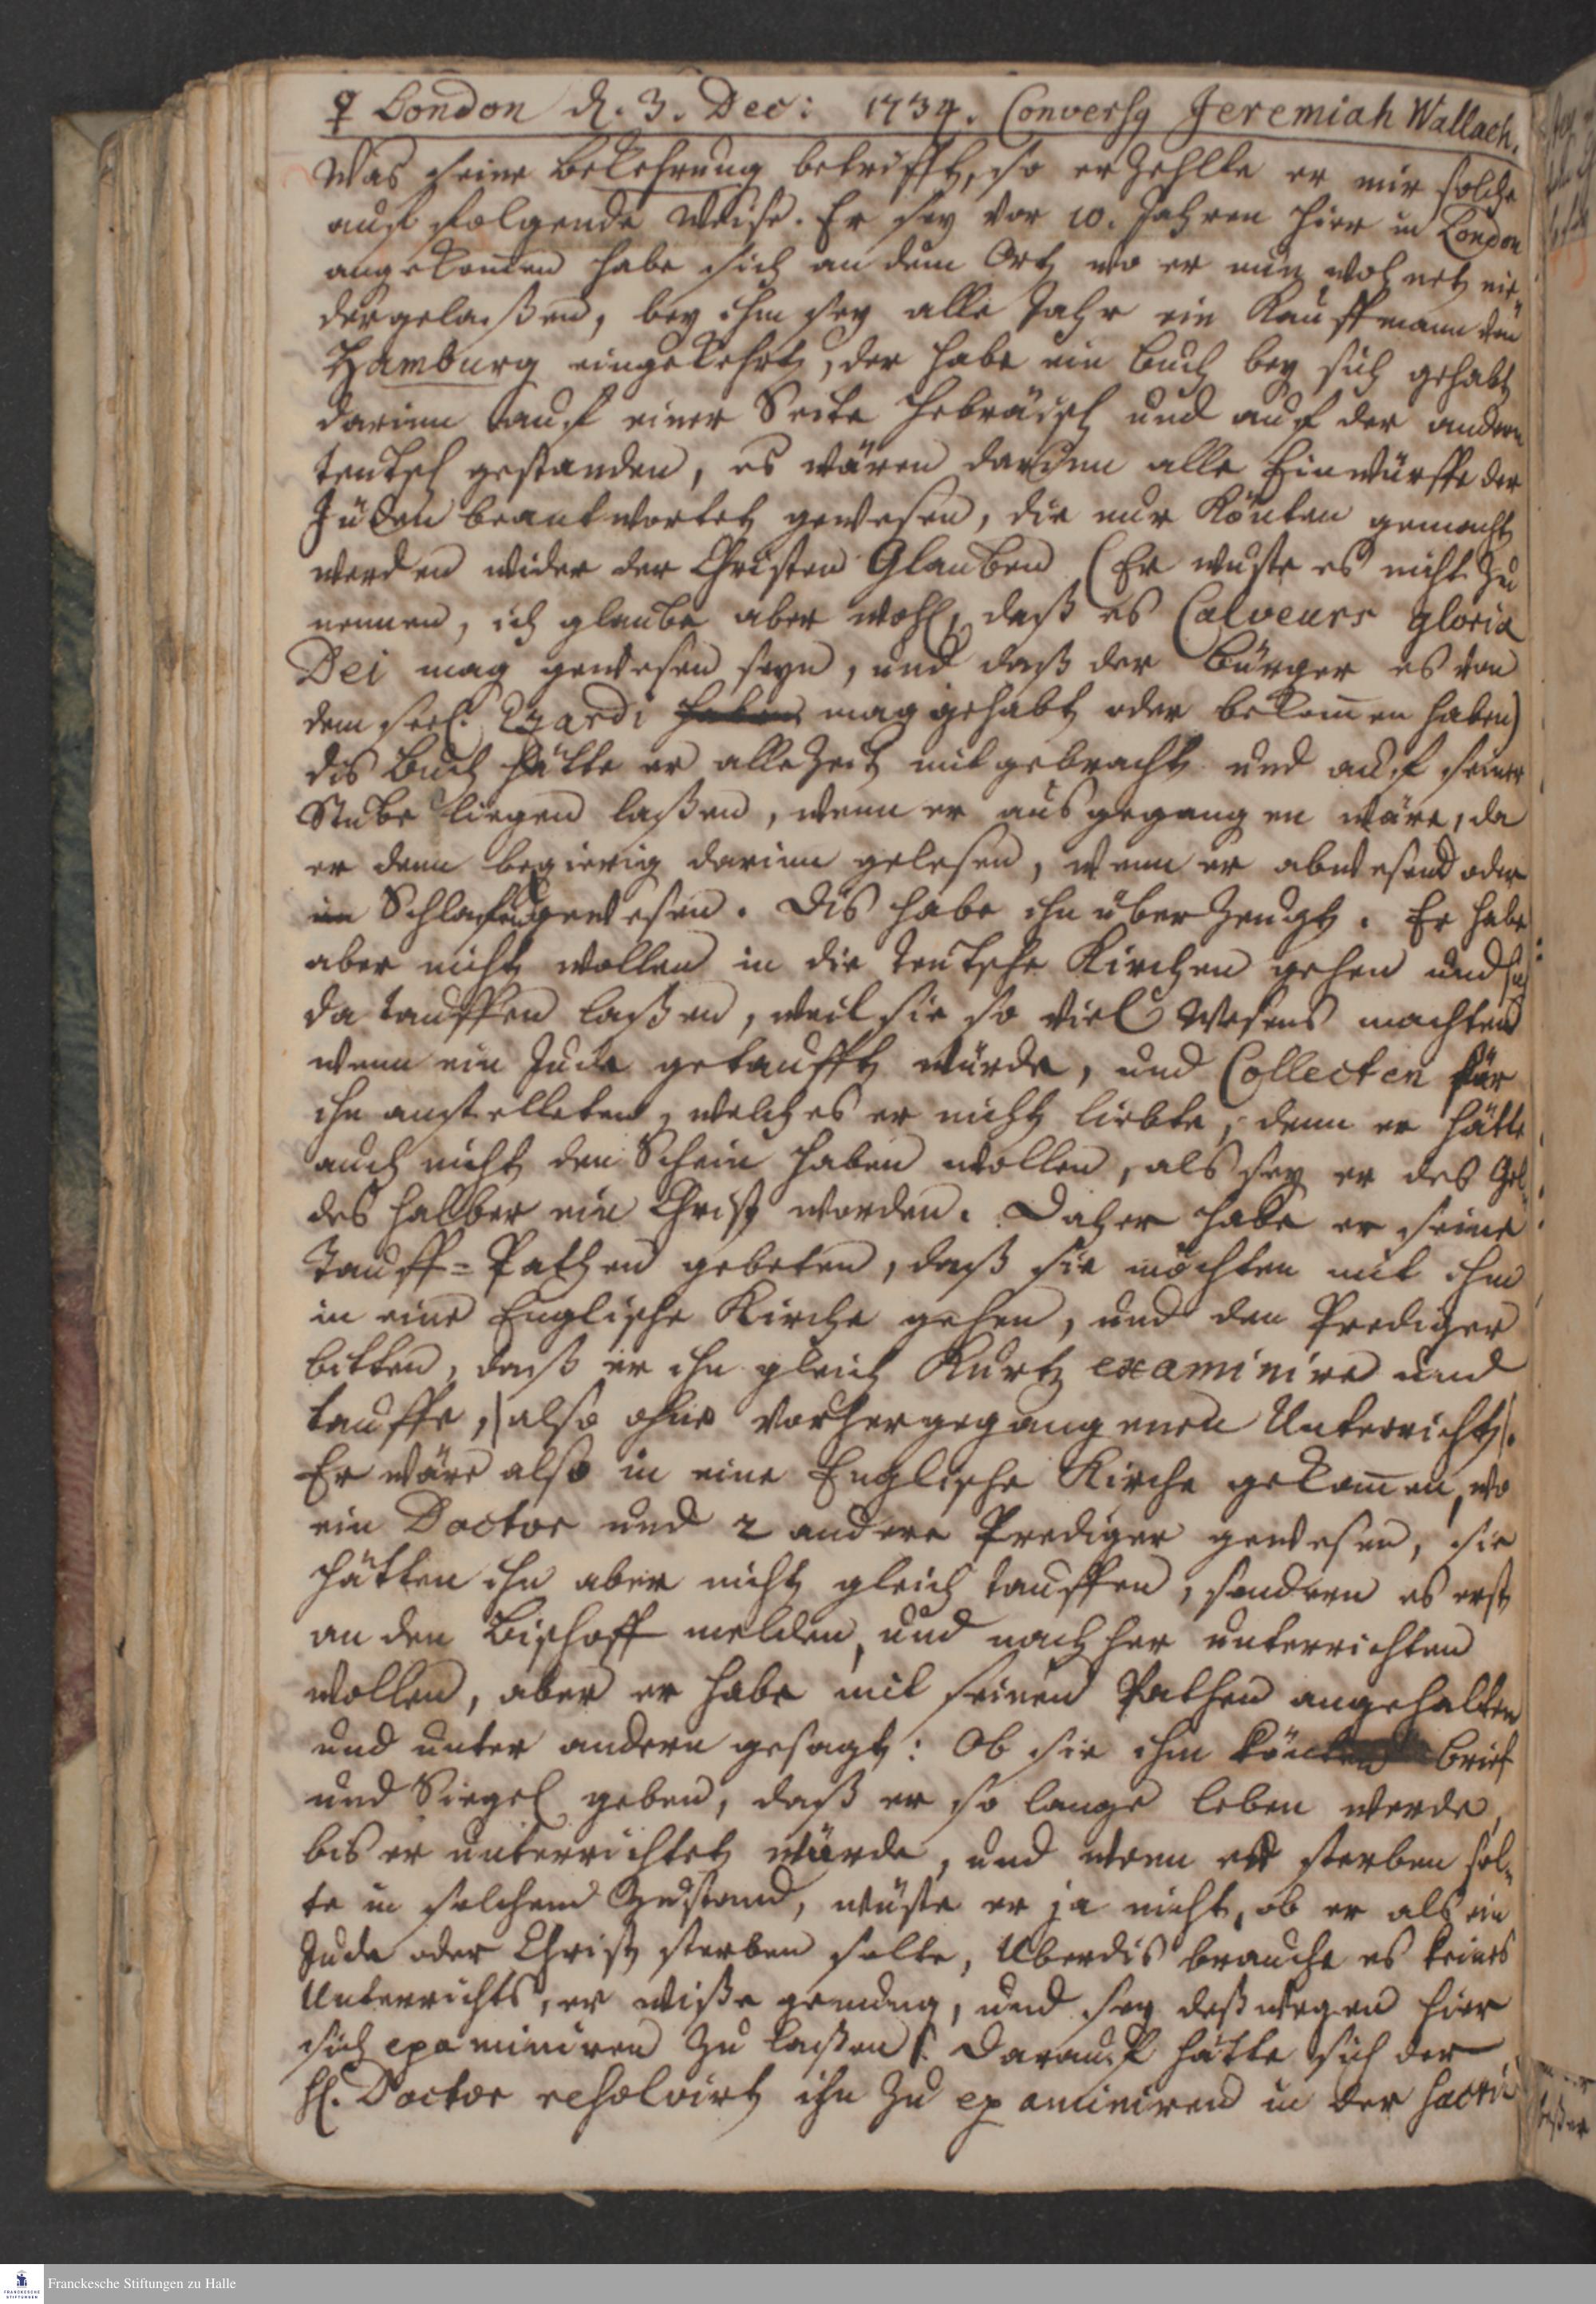 ♀ London d. 3. Dec: 1734. Conversq Jeremiah Wallach.
Was seine Bekehrung betrifft, so erzehlte er mir solche
auf folgende Weise. Er sey vor 10. Jahren hier in London
angekom̄en habe sich an dem Ort wo er nun wohnet nie-
dergelaßen, bey ihm sey alle Jahr ein Kauffmann von
Hamburg eingekehrt, der habe ein Buch bey sich gehabt
darinn auf einer Seite Hebräisch und auf der andern
teutsch gestanden, es wären darinn alle Einwürffe der
Jüden beantwortet gewesen, die nur könten gemacht
werden wider der Christen Glauben (Er wuste es nicht zu
nennen, ich glaube aber wohl, daß es Calveurs gloria
Dei mag gewesen seyn, und daß der Bürger es von
dem seel. Ezardi haben mag gehabt oder bekom̄en haben)
dis Buch hätte er allezeit mitgebracht und auf seiner
Stube liegen laßen, wenn er ausgegangen wäre, da
er denn begierig darinn gelesen, wenn er abwesend oder
im Schlafen gewesen. Dis habe ihn überzeugt. Er habe
aber nicht wollen in die teutsche Kirchen gehen und sich
da tauffen laßen, weil sie so viel Wesens machten
wenn ein Jude getaufft würde, und Collecten für
ihn anstelleten, welches er nicht liebte, denn er hätte
auch nicht den Schein haben wollen, als sey er des Gel-
des halber ein Christ worden. Daher habe er seine
Tauff-Pathen gebeten, daß sie möchten mit ihm
in eine Englische Kirche gehen, und den Prediger
bitten, daß er ihn gleich kurtz examinire und
tauffe, (also ohne vorhergegangenen Unterricht).
Er wäre also in eine Englische Kirche gekom̄en, wo
ein Doctor und 2 andere Prediger gewesen, sie
hätten ihn aber nicht gleich tauffen, sondern es erst
an den Bischoff melden, und nachher unterrichten
wollen, aber er habe mit seinen Pathen angehalten
und unter andern gesagt: Ob sie ihm könten Brief
und Siegel geben, daß er so lange leben werde,
bis er unterrichtet würde, und wenn er sterben sol-
te in solchem Zustand, wüste er ja nicht, ob er als ein
Jude oder Christ sterben solte, Uberdis brauche es keines
Unterrichts, er wiße genung, und sey deßwegen hier
sich examiniren zu laßen. Darauf hätte sich der
H. Doctor resolvirt ihn zu examiniren in der Sacri-
Franckesche Stiftungen zu Halle